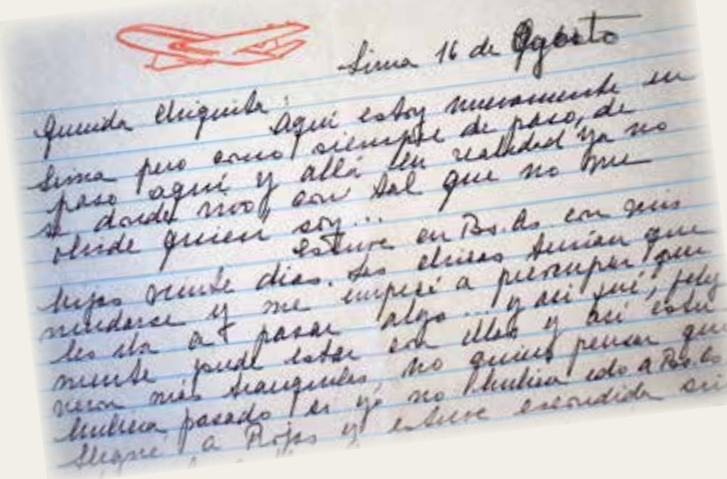 Lima 16 de Agosto
Querida Chiquita:
Aquí estoy nuevamente en
Lima pero como siempre de paso, de
paso aquí y allá en realidad ya no
sé donde vivo, con tal que no me
olvide quien soy...
Estuve en Bs. As. con mis
hijas veinte días. Las chicas tenían que
mudarse y me empecé a preocupar que
les iba a pasar algo... y así fué, feliz
mente pude estar con ellas y así estu
vieron más tranquilas, no quiero pensar que
hubiera pasado si yo no hubiera ido a Bs. As.
Llegué a Rojas y estuve escondida sin